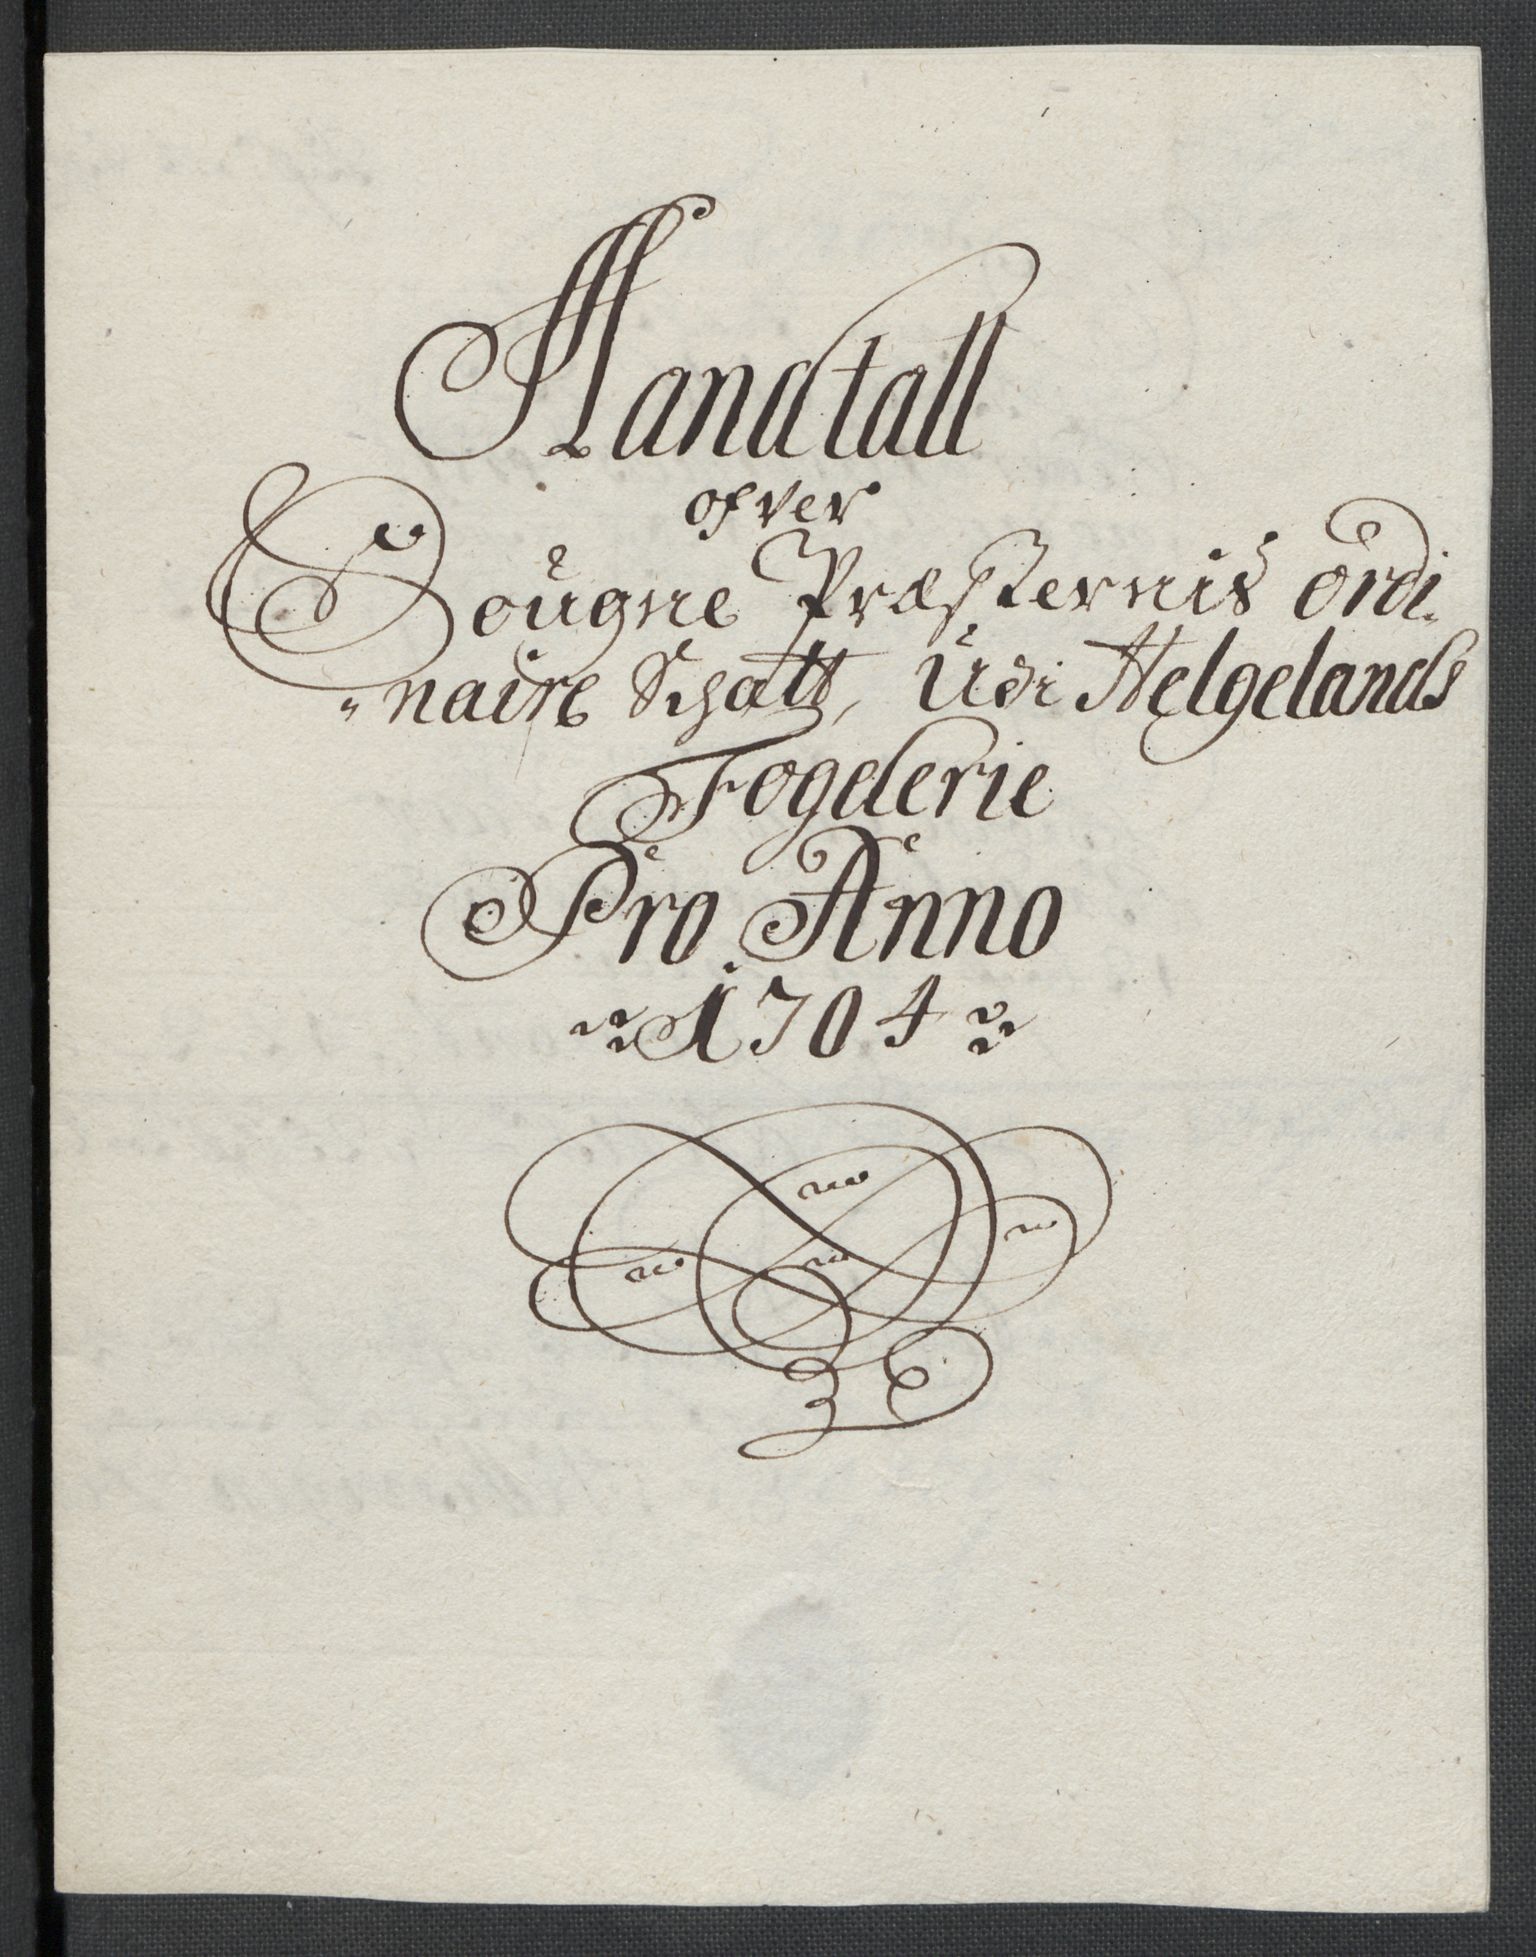 Mandtall
ofver
Sougne Præsternis ordi-
naire Schatt, Udi Helgelands
Fogderie
Pro Anno
1704